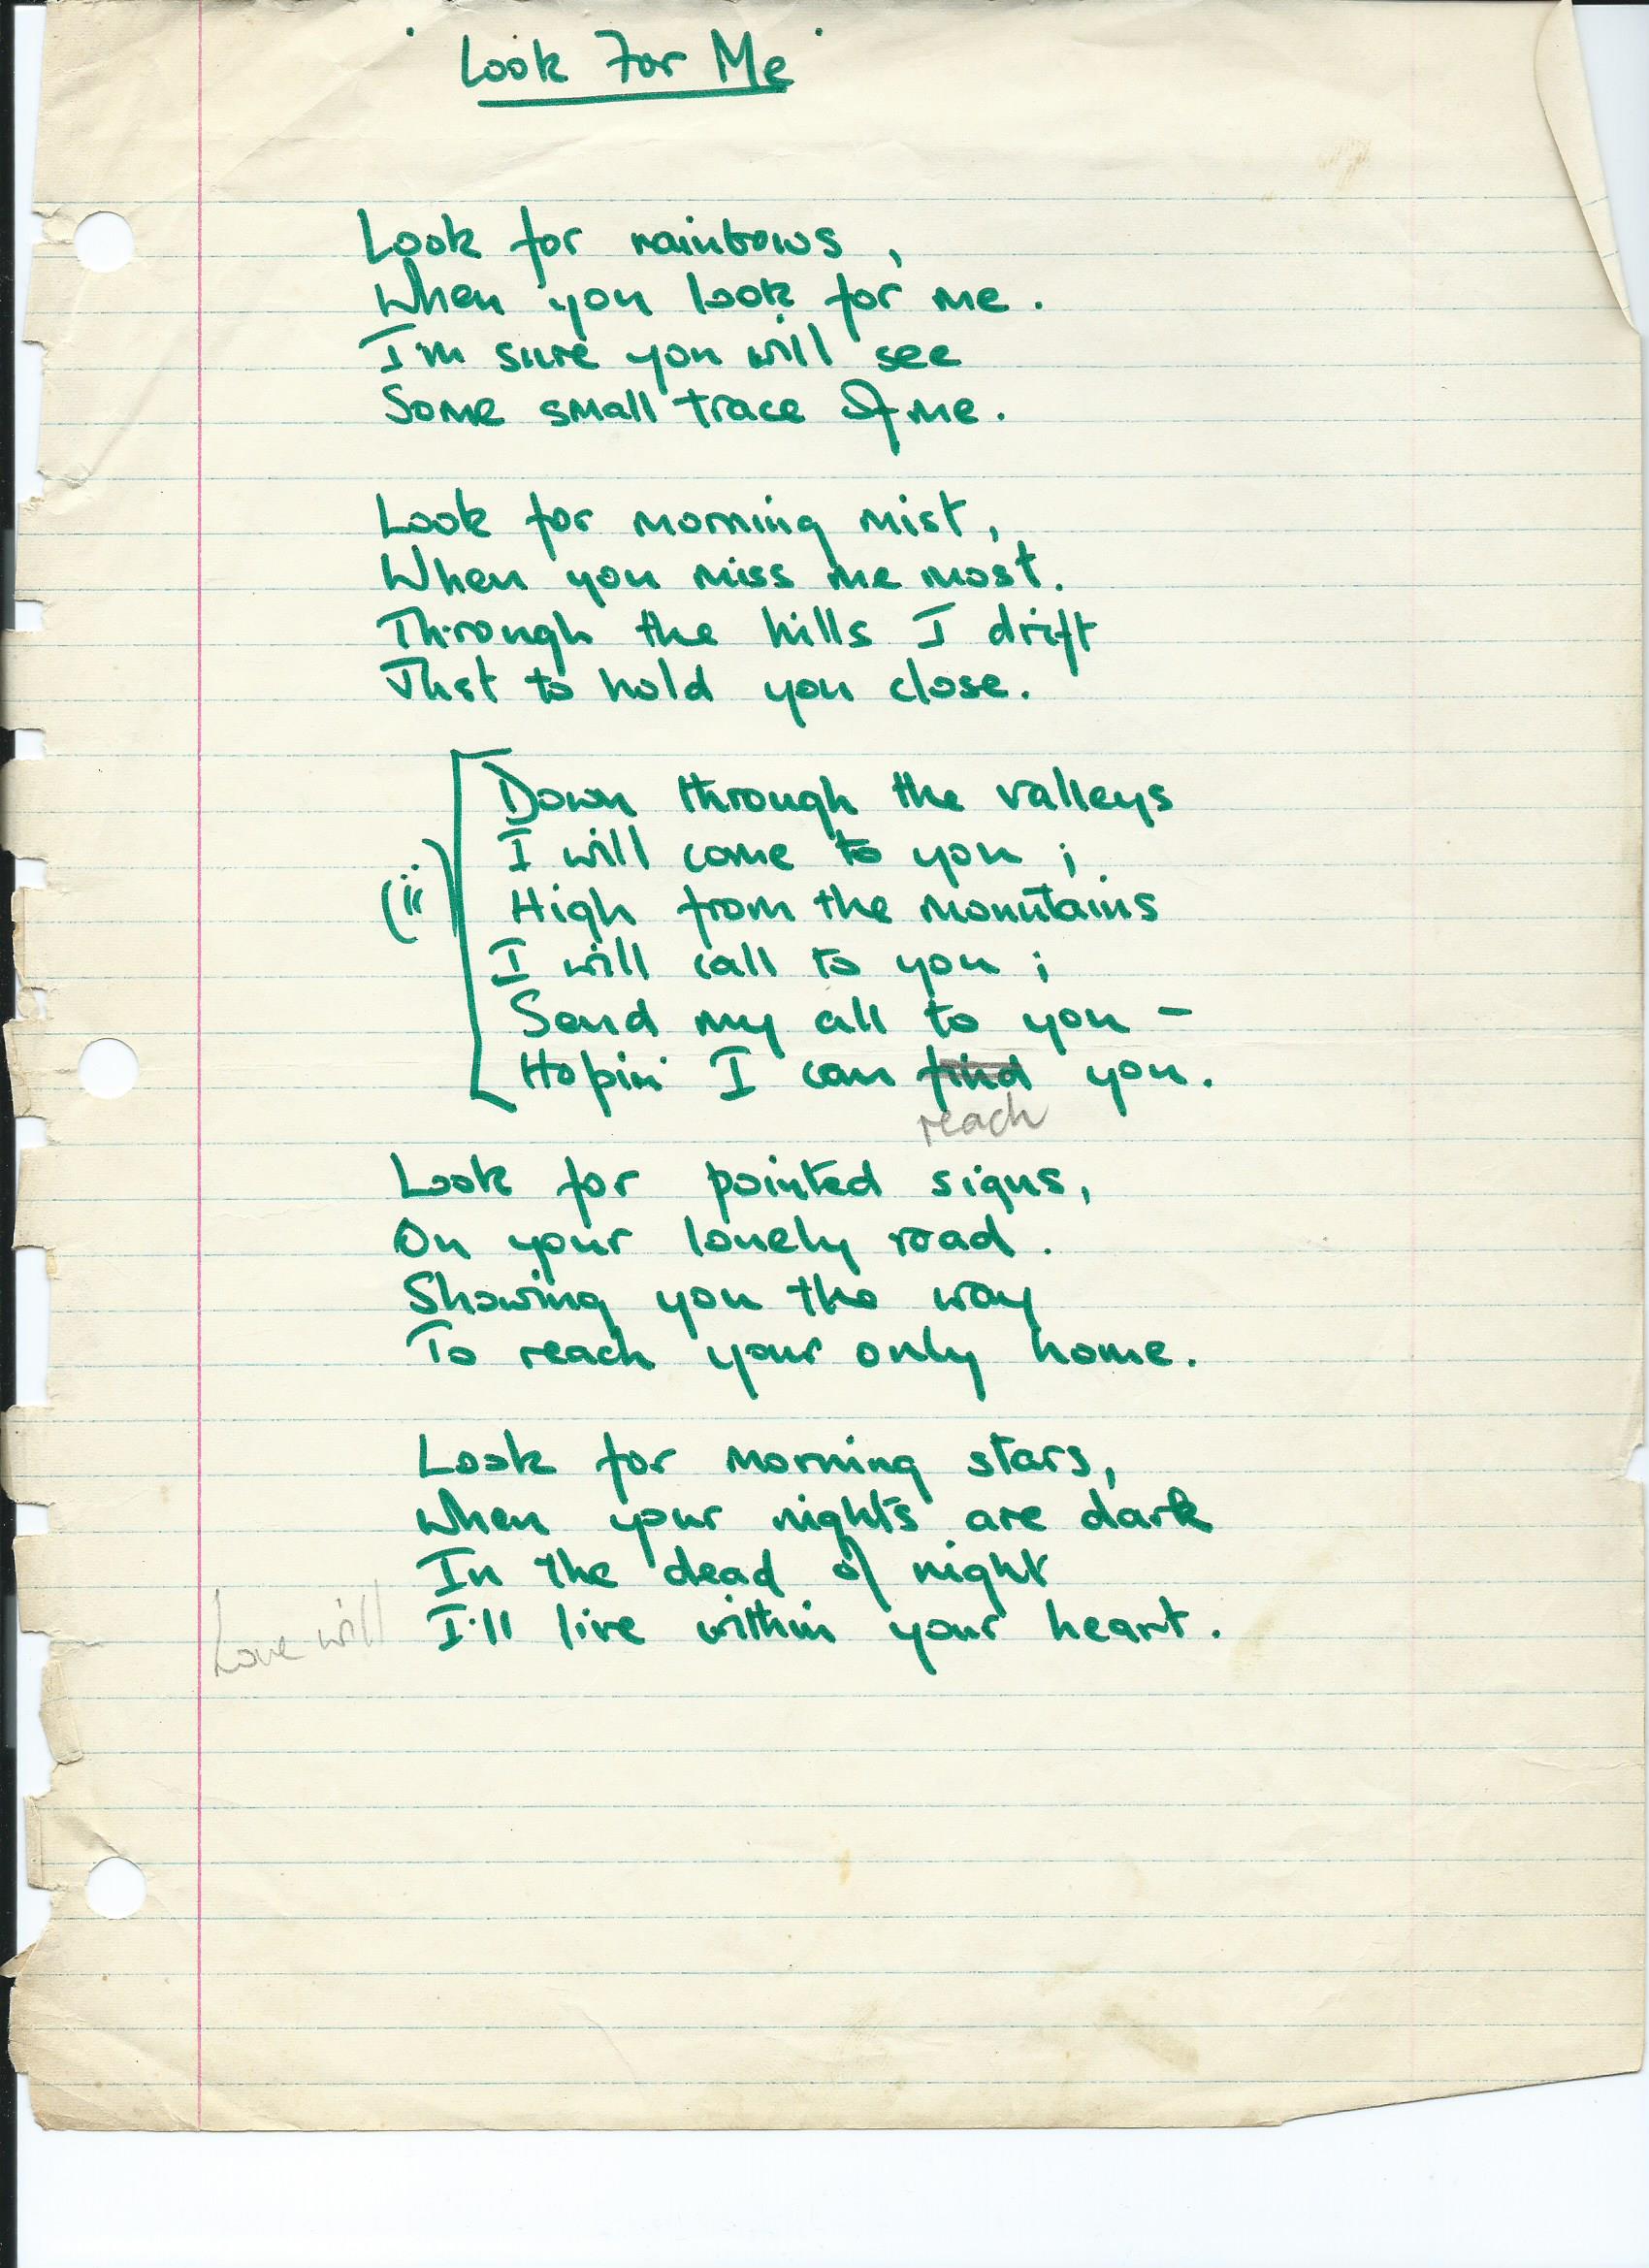 'Look For Me'
Look for rainbows,
When you look for me.
I'm sure you will see
Some small trace Of me.
Look for morning mist,
When you miss me most.
Through the hills I drift
Just to hold you close.
Down through the valleys
I will come to you ;
(ii) High from the mountains
I will call to you ;
Send my all to you -
Hopin' I can find you.
reach
Look for pointed signs,
On your lonely road.
Showing you the way
To reach your only home.
Look for morning stars,
When your nights are dark
In the dead of night
Love will I'll live within your heart.